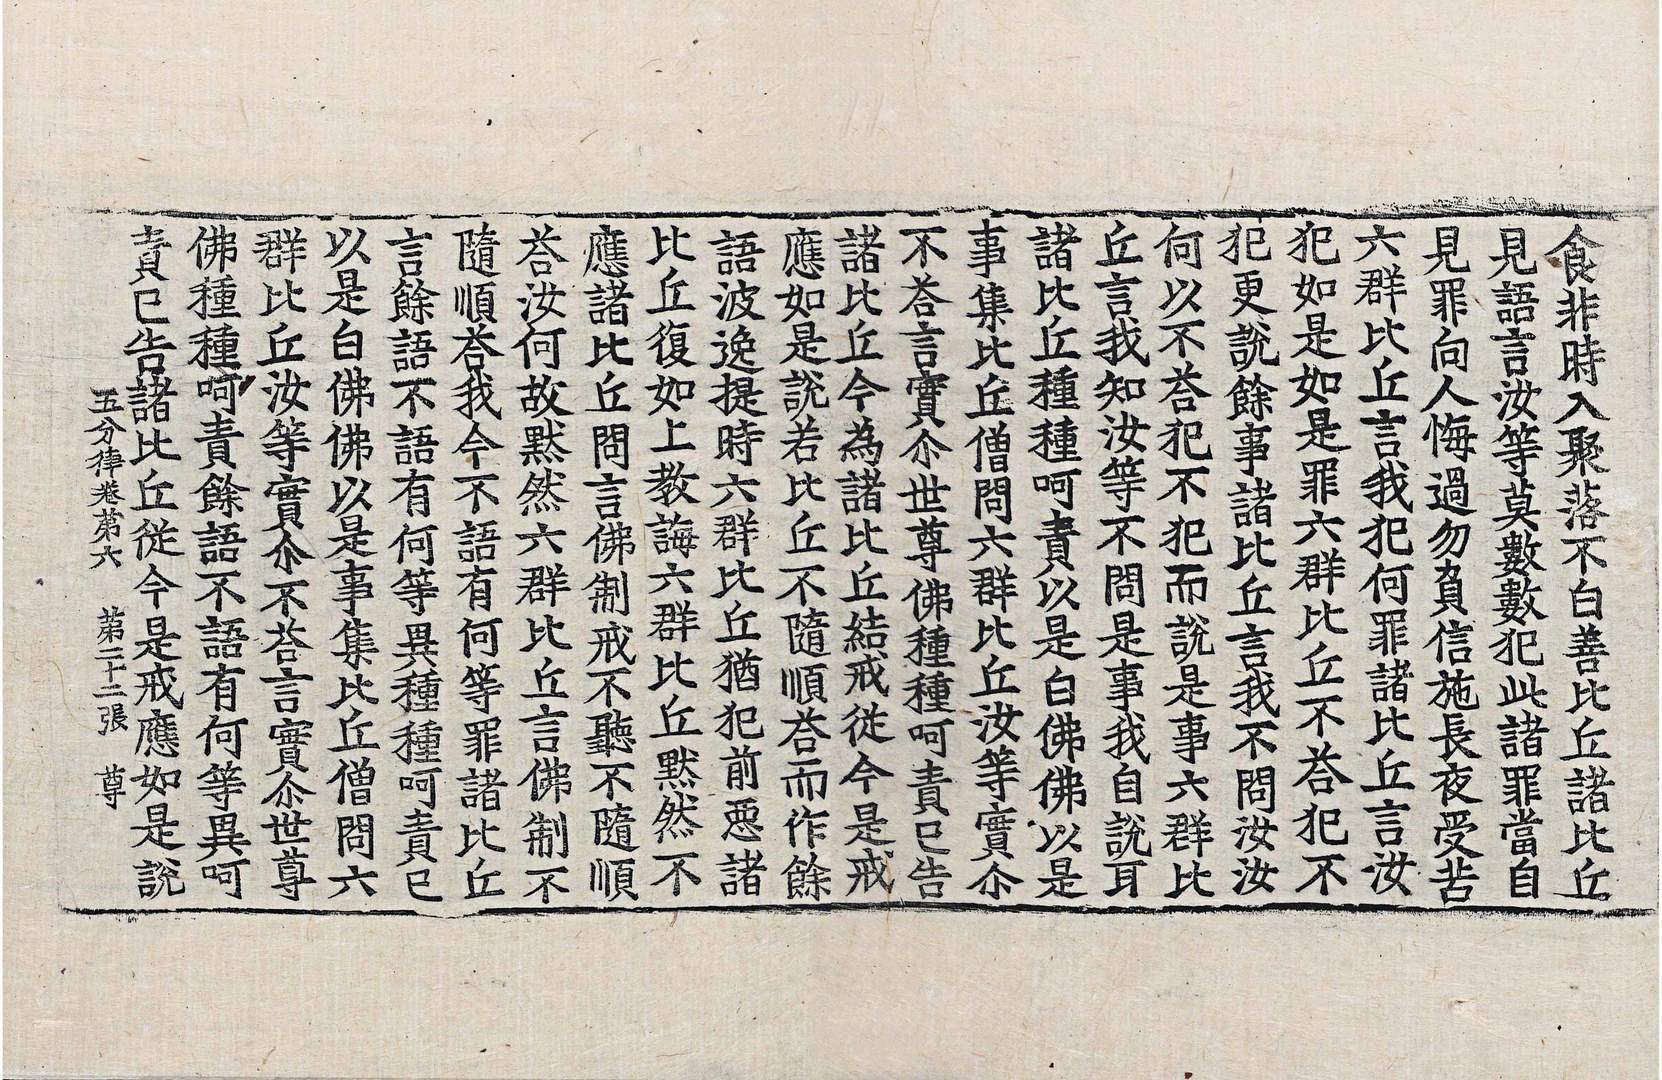 食非時入聚落不白善比丘諸比丘
見語言汝等莫數數犯此諸罪當自
見罪向人悔過勿負信施長夜受苦
六群比丘言我犯何罪諸比丘言汝
犯如是如是罪六群比丘不荅犯不
犯更說餘事諸比丘言我不問汝汝
何以不荅犯不犯而說是事六群比
丘言我知汝等不問是事我自說耳
諸比丘種種呵責以是白佛佛以是
事集比丘僧問六群比丘汝等實尒
不荅言實尒世尊佛種種呵責已告
諸比丘今為諸比丘結戒從今是戒
應如是說若比丘不隨順荅而作餘
語波逸提時六群比丘猶犯前惡諸
比丘復如上教誨六群比丘默然不
應諸比丘問言佛制戒不聽不隨順
荅汝何故默然六群比丘言佛制不
隨順荅我今不語有何等罪諸比丘
言餘語不語有何等異種種呵責已
以是白佛佛以是事集比丘僧問六
群比丘汝等實尒不荅言實尒世尊
佛種種呵責餘語不語有何等異呵
責已告諸比丘從今是戒應如是說
五分律卷第六 第二十二張 尊